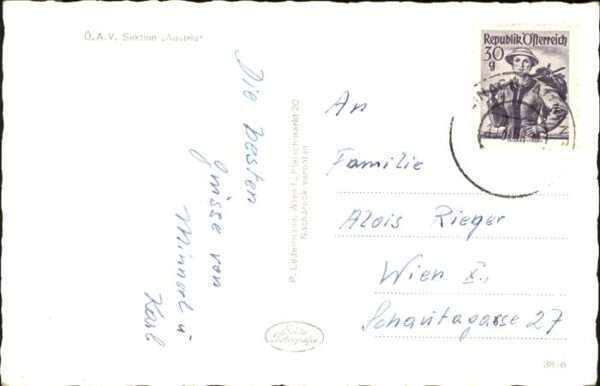 Ö.A.V. Sektion „Austria"
Die besten
Grüsse von
Minnerl u
Karl
P. Ledermann, Wien I., Fleischmarkt 20
Nachdruck verboten
Republik Österreich
30
g
An
Familie
Alois Rieger
Wien X.,
Schautagasse 27
Echte